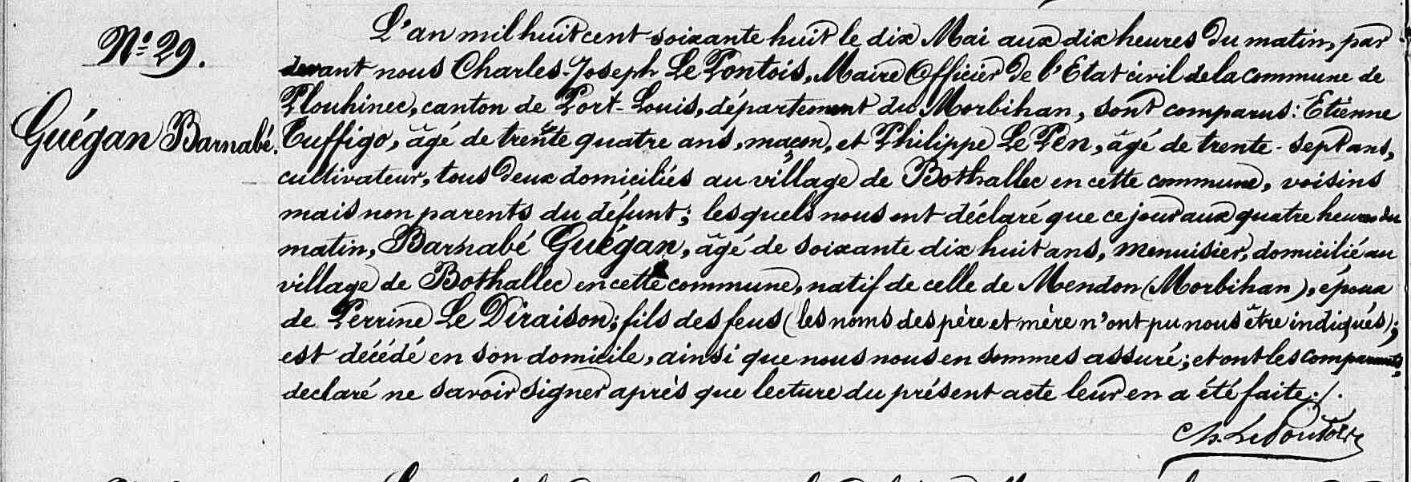 Nº 29.
Guégan Barnabé.
L'an mil huit cent soixante huit le dix Mai aux dix heures du matin, par
devant nous Charles-Joseph Le Pontois, Maire Officier de l'Etat civil de la commune de
Plouhinec, canton de Port-Louis, département du Morbihan, sont comparus: Etienne
Tuffigo, âgé de trente quatre ans, maçon, et Philippe Le Pen, âgé de trente-sept ans,
cultivateur, tous deux domiciliés au village de Bothallec en cette commune, voisins
mais non parents du défunt; lesquels nous ont déclaré que ce jour aux quatre heures du
matin, Barnabé Guégan, âgé de soixante dix huit ans, menuisier, domicilié au
village de Bothallec en cette commune, natif de celle de Mendon (Morbihan), époux
de Perrine Le Diraison; fils des feus (les noms des père et mère n'ont pu nous être indiqués);
est décédé en son domicile, ainsi que nous nous en sommes assuré; et ont les comparants,
declaré ne savoir signer après que lecture du présent acte leur en a été faite./.
Ch. Le Pontois